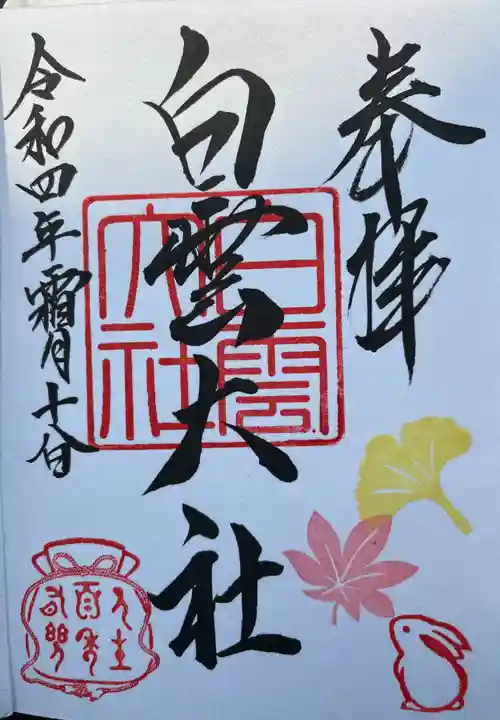 奉拝
白雲大社
令和四年霜月十一日
白雲
大社